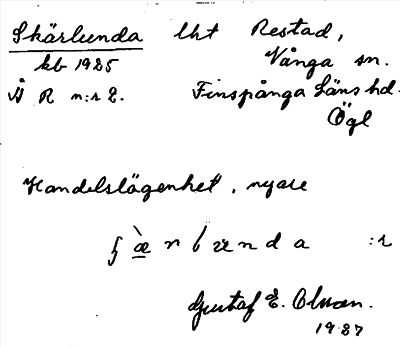 Skärlunda lht Restad,
kb 1925 Vånga sn.
Å R n:r 2. Finspånga läns hd.
Ögl
Handelslägenhet, nyare
:r
Gustaf E.
1937